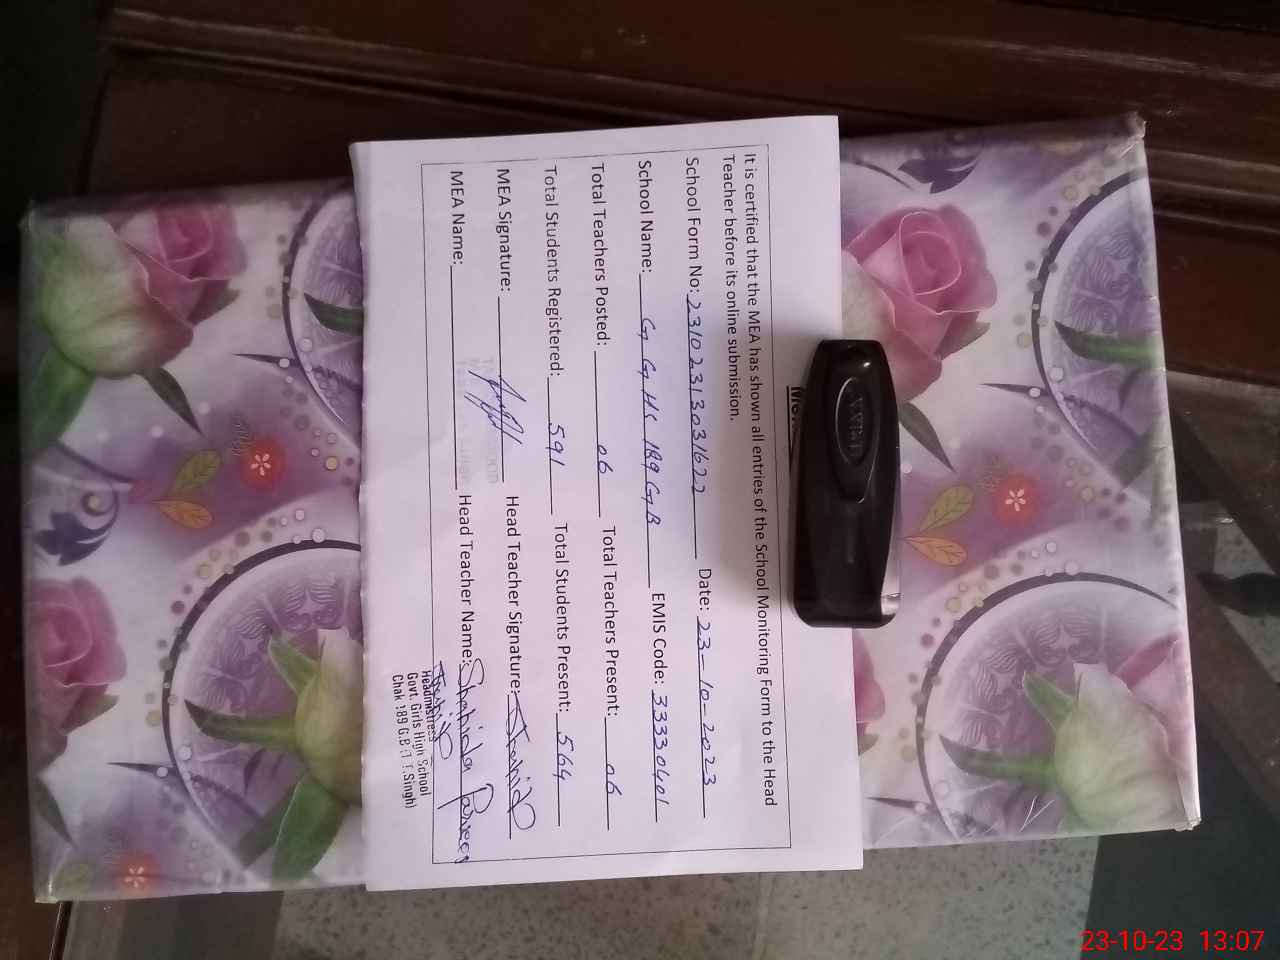 It is certified that the MEA has shown all entries of the School Monitoring Form to the Head
Teacher before its online submission.
School Form No: 23102313031622 Date: 23-10-2023
School Name: G G HS 189 GB EMIS Code: 33330401
Total Teachers Posted: 06 Total Teachers Present: 06
Total Students Registered: 591 Total Students Present: 564
MEA Signature: Head Teacher Signature:
MEA Name: Head Teacher Name: Shahida Parveen
Headmistress
Govt. Girls High School
Chak 189 G.B (T.T.Singh)
23-10-23 13:07